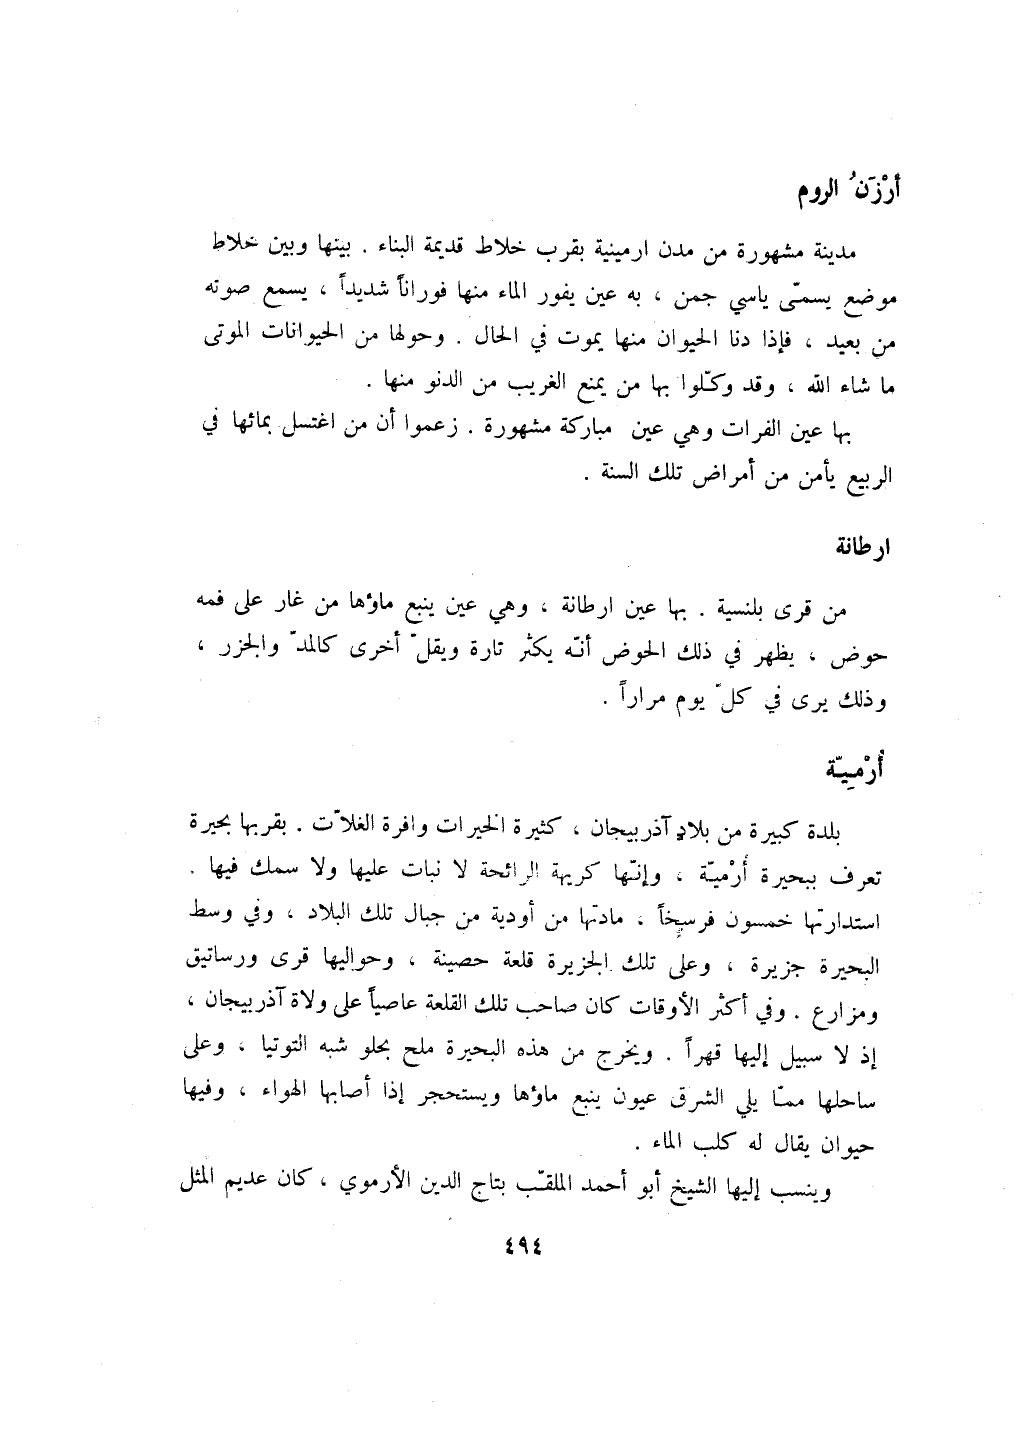 أرْزَنُ الروم
مدينة مشهورة من مدن ارمينية بقرب خلاط قديمة البناء . بينها وبين خلاط
موضع يسمّى ياسي جمن ، به عين يفور الماء منها فوراناً شديداً ، يسمع صوته
من بعيد ، فإذا دنا الحيوان منها يموت في الحال . وحولها من الحيوانات الموتى
ما شاء الله ، وقد وكّلوا بها من يمنع الغريب من الدنو منها .
بها عين الفرات وهي عين مباركة مشهورة . زعموا أن من اغتسل بمائها في
الربيع يأمن من أمراض تلك السنة .
ارطانة
من قرى بلنسية . بها عين ارطانة ، وهي عين ينبع ماؤها من غار على فمه
حوض ، يظهر في ذلك الحوض أنّه يكثر تارة ويقلّ أخرى كالمدّ والجزر ،
وذلك يرى في كلّ يوم مراراً .
أُرْمِيّة
بلدة كبيرة من بلاد آذربيجان ، كثيرة الخيرات وافرة الغلاّت . بقربها بحيرة
تعرف ببحيرة أُرْميّة ، وإنّها كريهة الرائحة لا نبات عليها ولا سمك فيها .
استدارتها خمسون فرسخاً ، مادتها من أودية من جبال تلك البلاد ، وفي وسط
البحيرة جزيرة ، وعلى تلك الجزيرة قلعة حصينة ، وحواليها قرى ورساتيق
ومزارع . وفي أكثر الأوقات كان صاحب تلك القلعة عاصياً على ولاة آذربيجان ،
إذ لا سبيل إليها قهراً . ويخرج من هذه البحيرة ملح يحلو شبه التوتيا ، وعلى
ساحلها ممّا يلي الشرق عيون ينبع ماؤها ويستحجر إذا أصابها الهواء ، وفيها
حيوان يقال له كلب الماء .
وينسب إليها الشيخ أبو أحمد الملقّب بتاج الدين الأرموي ، كان عديم المثل
٤٩٤